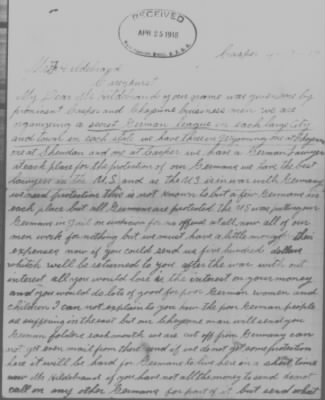 RECEIVED
APR 25 1918
Casper
My Dear Mr Hildebrand your name was given us by
prominent Casper and Cheyenne business men we are
organizing a secret German League in each large city
and town in each state we have three in Wyoming one at Cheyenne
one at Sheridan and one at Casper we have a German Lawyer
at each place for the protection of our Germans we have the best
lawyers in the U.S and as the U.S is in war with Germany
we need protection this is not known to but a few Germans in
each place but all Germans are protected the U.S was putting our
Germans in Jail or no offend at all now all of our
men work for nothing but we must have a little money for their
expenses now if you could send us five hundred dollars
which will be returned to you after the war with out
interest all you would lose is the interest on your money
and you would do lots of good for poor German women and
children I can not explain to you how the poor German people
are suffering in the east but our Cheyenne man will send you
German folders each month we are cut off from Germany can
not get even mail from there and if we do not get some protection
here it will be hard for Germans to live here in a short time
now Mr Hildebrand if you have not all the money to send do not
call on any other Germans for part of it but send what